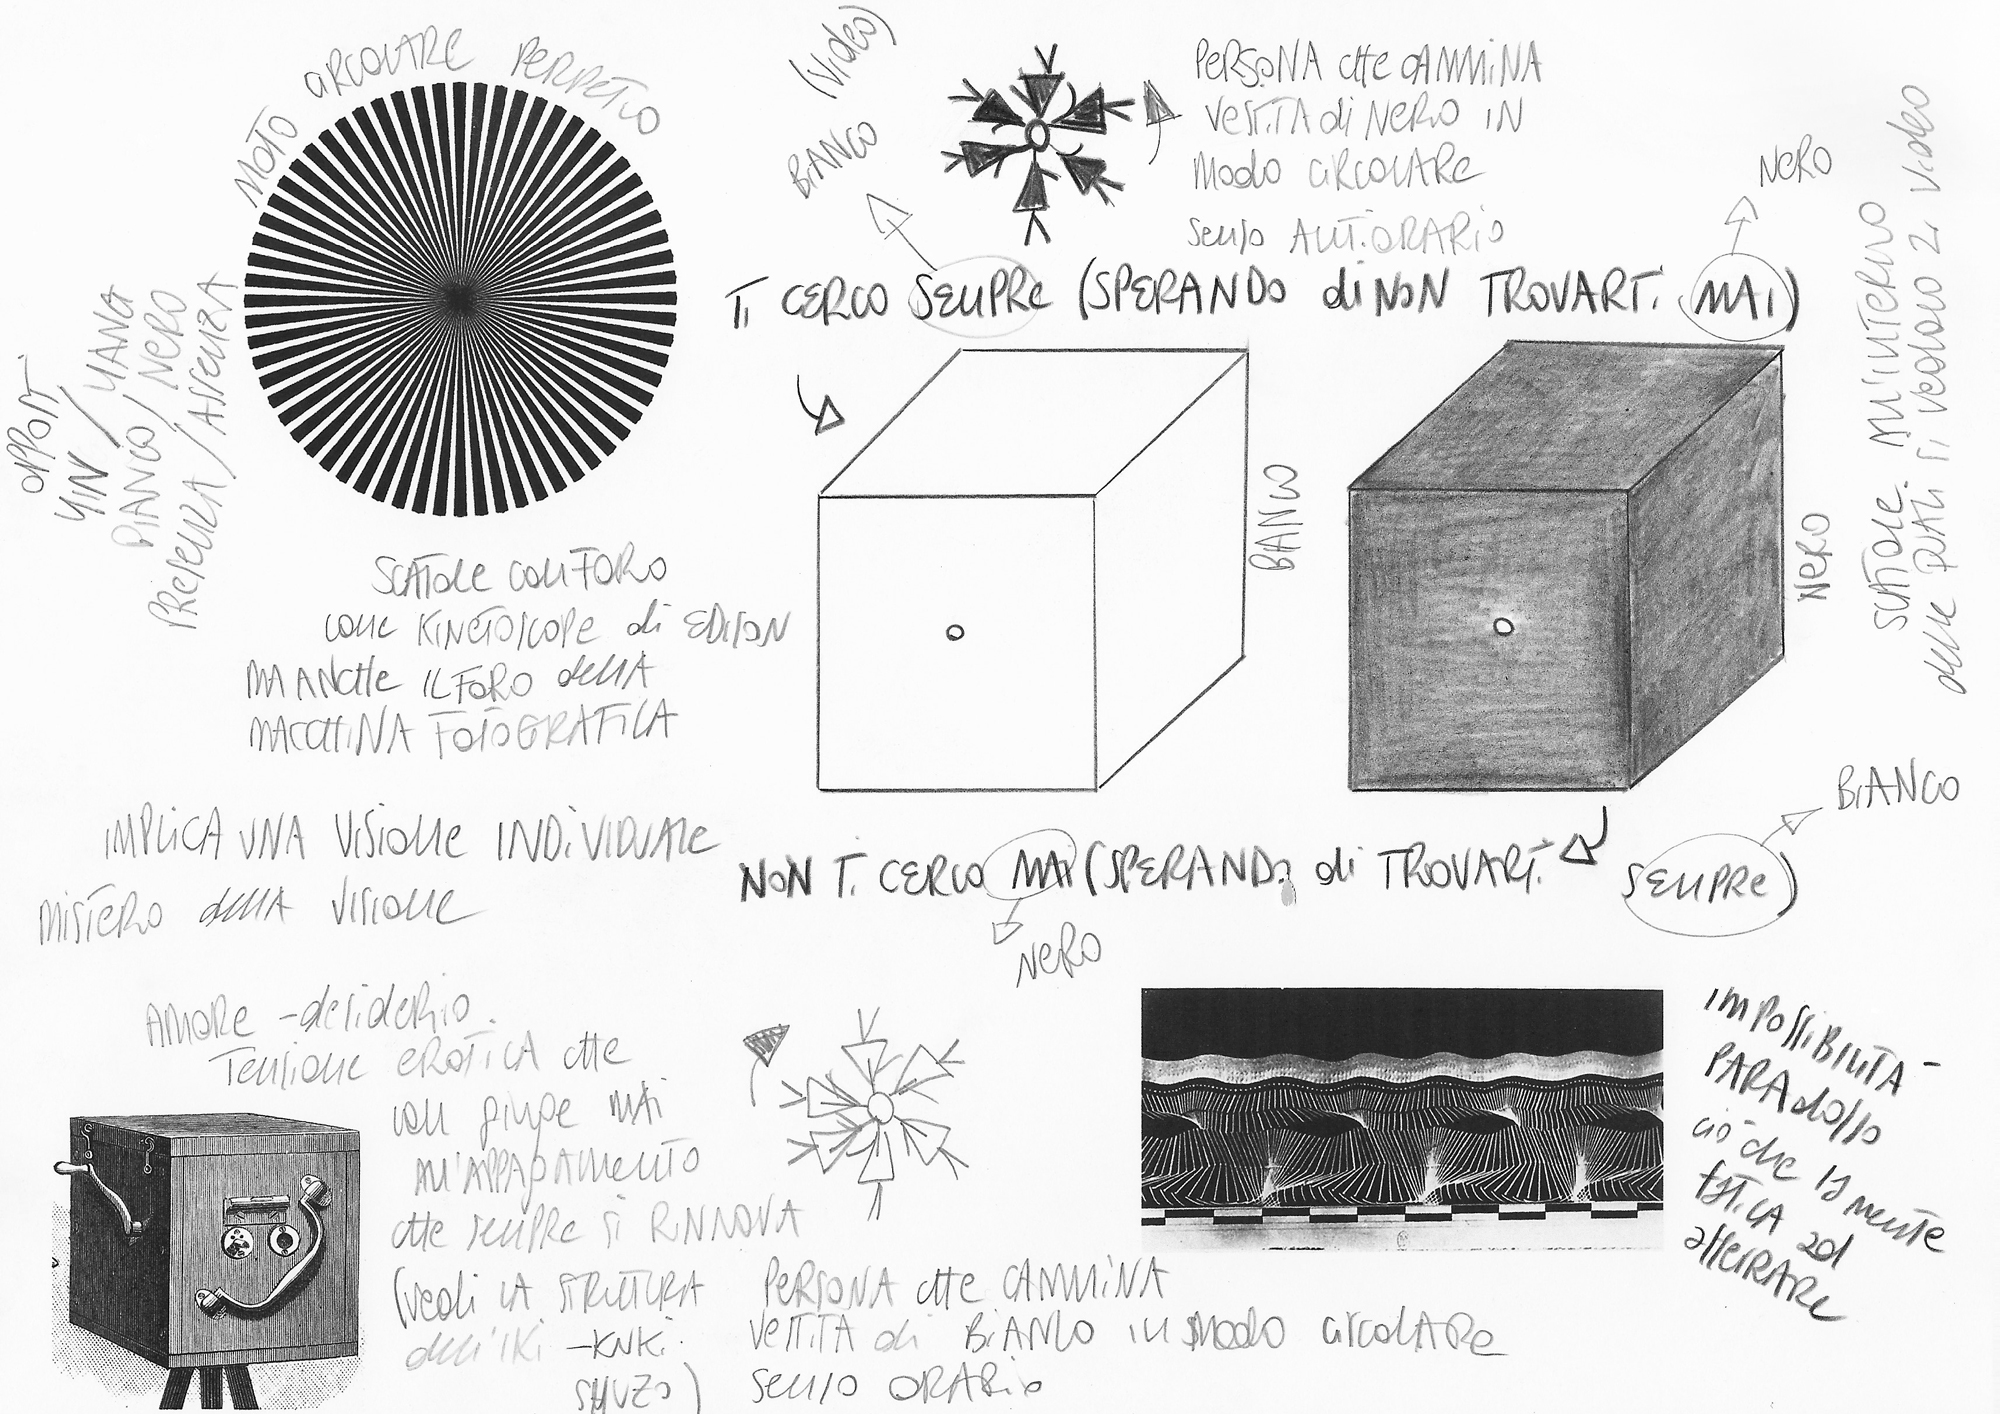 MOTO CIRCOLARE PERPETUO
OPPOSTI
YIN / YANG
BIANCO / NERO
PRESENZA / ASSENZA
(video)
BIANCO
PERSONA CHE CAMMINA
VESTITA di NERO IN
MODO CIRCOLARE
SENSO ANTIORARIO
NERO
TI CERCO SEMPRE (SPERANDO di NON TROVARTI MAI)
BIANCO
NERO
SCATOLE ALL'INTERNO
delle QUALI SI VEDONO 2 video
SCATOLE CON FORO
COME KINETOSCOPE di EDISON
MA ANCHE IL FORO della
MACCHINA FOTOGRAFICA
IMPLICA UNA VISIONE INDIVIDUALE
MISTERO della VISIONE
NON TI CERCO MAI (SPERANDO di TROVARTI SEMPRE)
NERO
BIANCO
AMORE - desiderio.
TENSIONE EROTICA CHE
NON giunge MAI
ALL'APPAGAMENTO
CHE SEMPRE SI RINNOVA
(vedi LA STRUTTURA
dell'IKI - KUKI
SHUZO)
PERSONA CHE CAMMINA
VESTITA di BIANCO IN MODO CIRCOLARE
SENSO ORARIO
IMPOSSIBILITA -
PARADOSSO
CIÒ CHE LA MENTE
FATICA AD
AFFERRARE